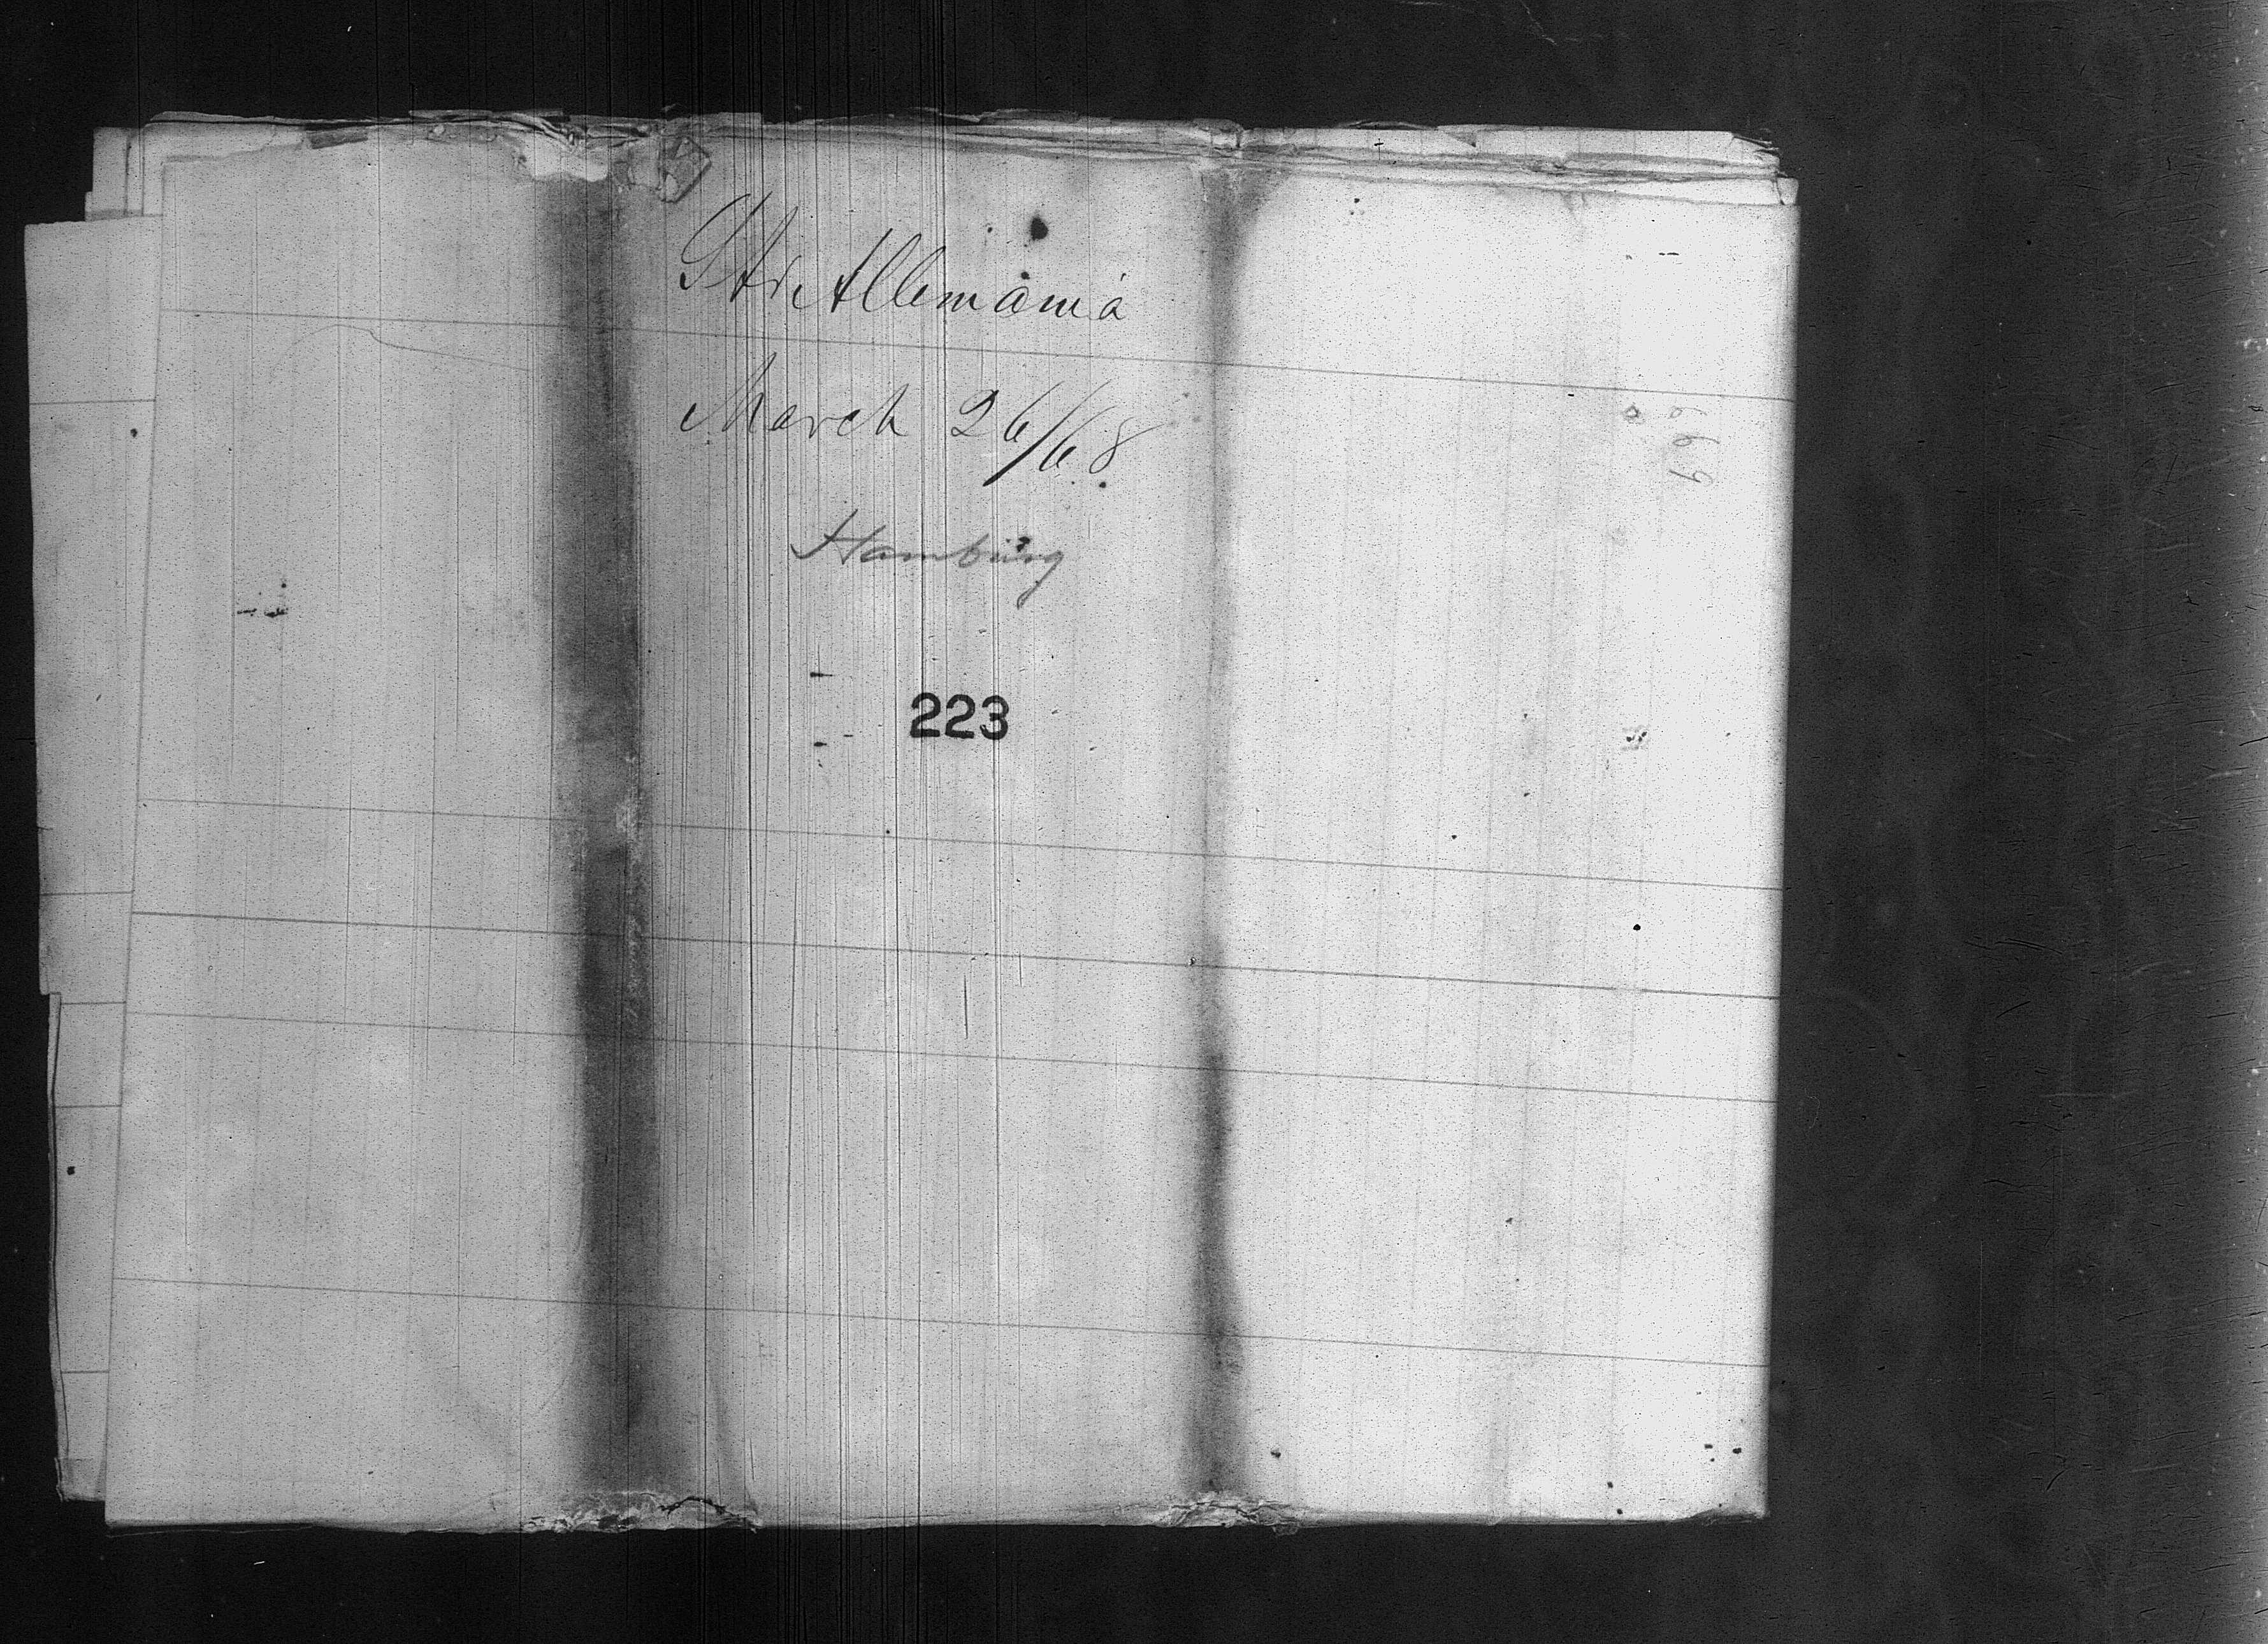 Str Allemania
March 26/68
Hamburg
223
669